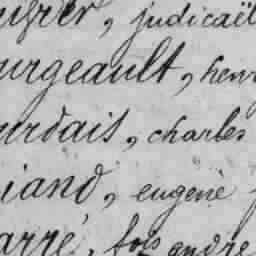 judicaël
urgeault, henr
urdais, charles
iand, eugène
arré, fois andre